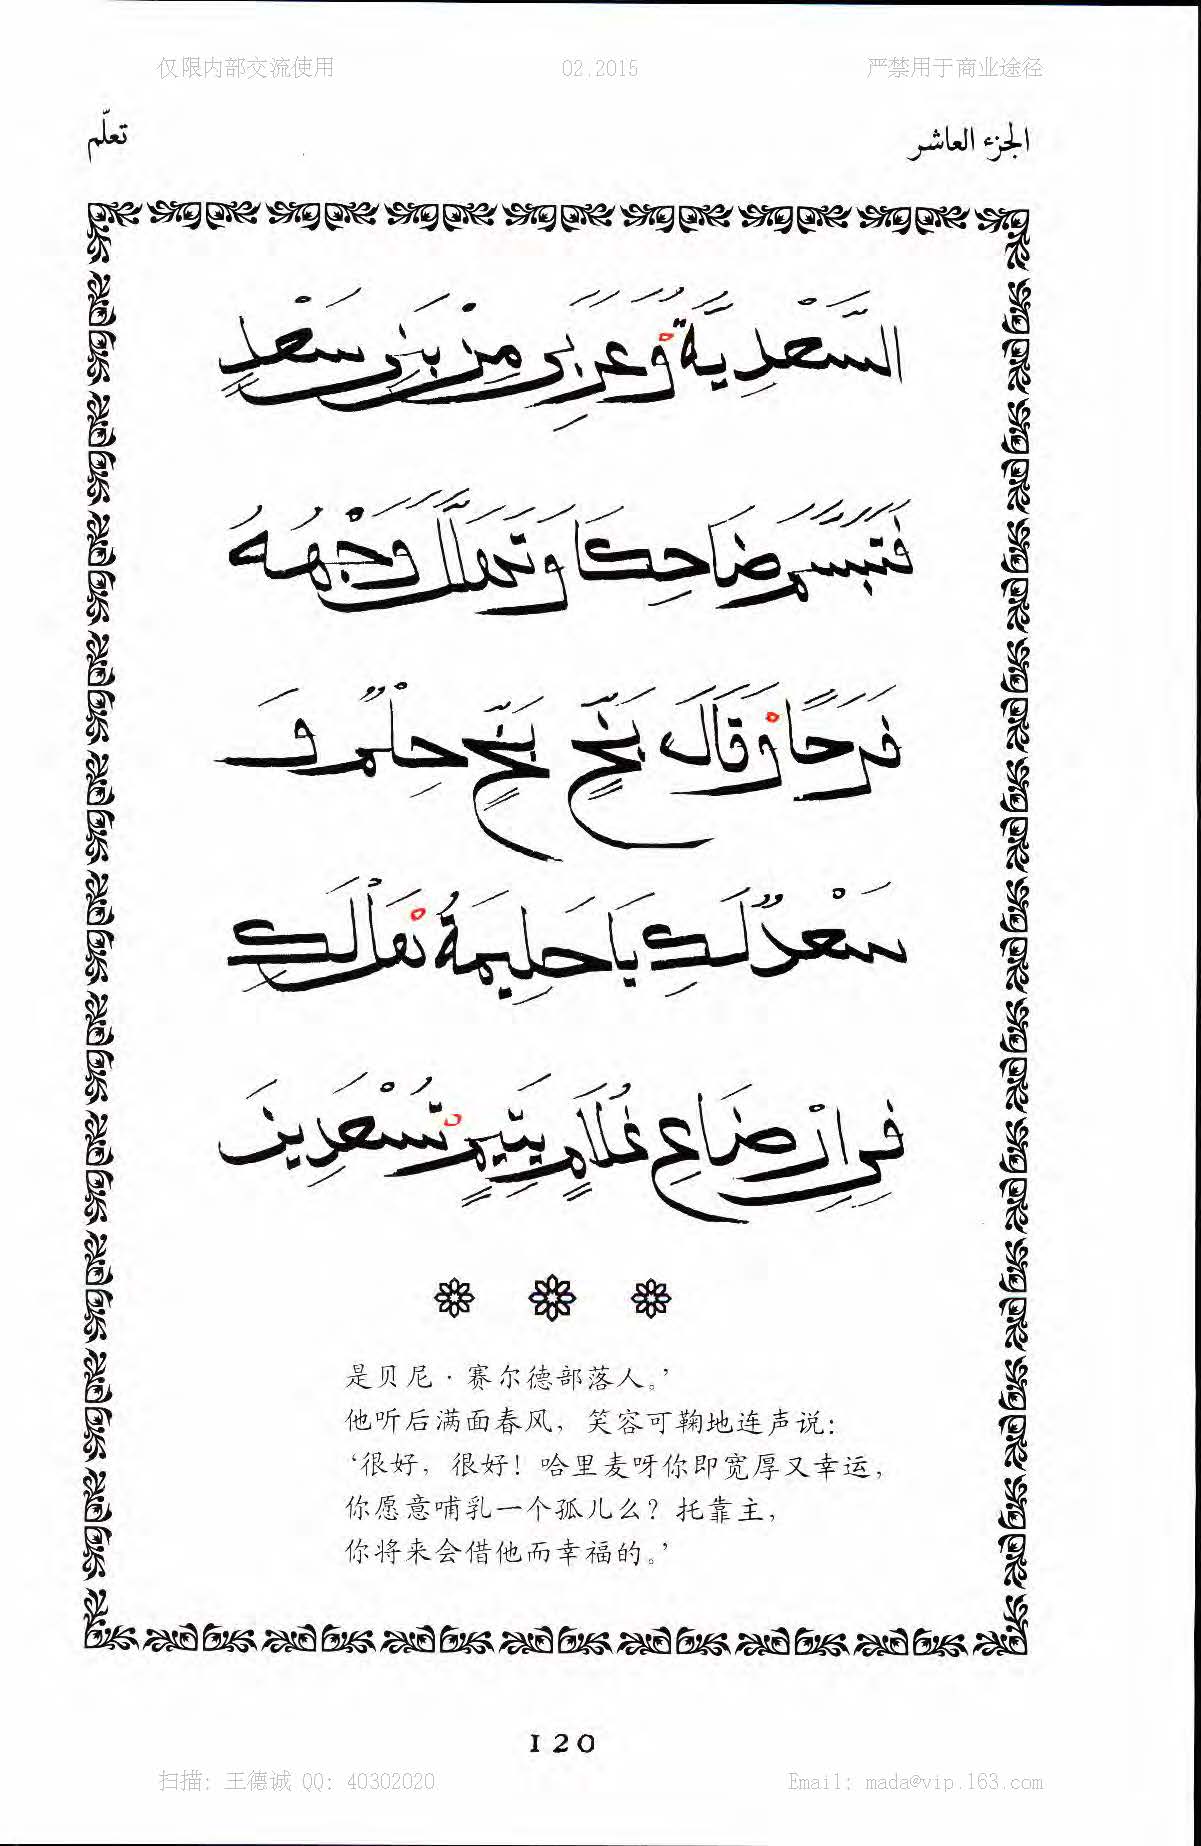 仅限内部交流使用 02.2015 严禁用于商业途径
الجزء العاشر تعلّم
السَّعْدِيَّةُ وَعَرَبِي مِنْ بَنِي سَعْدٍ
فَتَبَسَّمَ ضَاحِكًا وَتَهَلَّلَ وَجْهُهُ
فَرَحًا وَقَالَ بَخٍّ بَخٍّ حِلْمٌ وَ
سَعْدٌ لَكِ يَا حَلِيمَةُ هَلْ لَكِ
فِي اِرْضَاعِ غُلَامٍ يَتِيمٍ تُسْعَدِينَ
是贝尼·赛尔德部落人。’
他听后满面春风，笑容可鞠地连声说：
‘很好，很好！哈里麦呀你即宽厚又幸运，
你愿意哺乳一个孤儿么？托靠主，
你将来会借他而幸福的。’
120
扫描：王德诚 QQ：40302020 Email：mada@vip.163.com